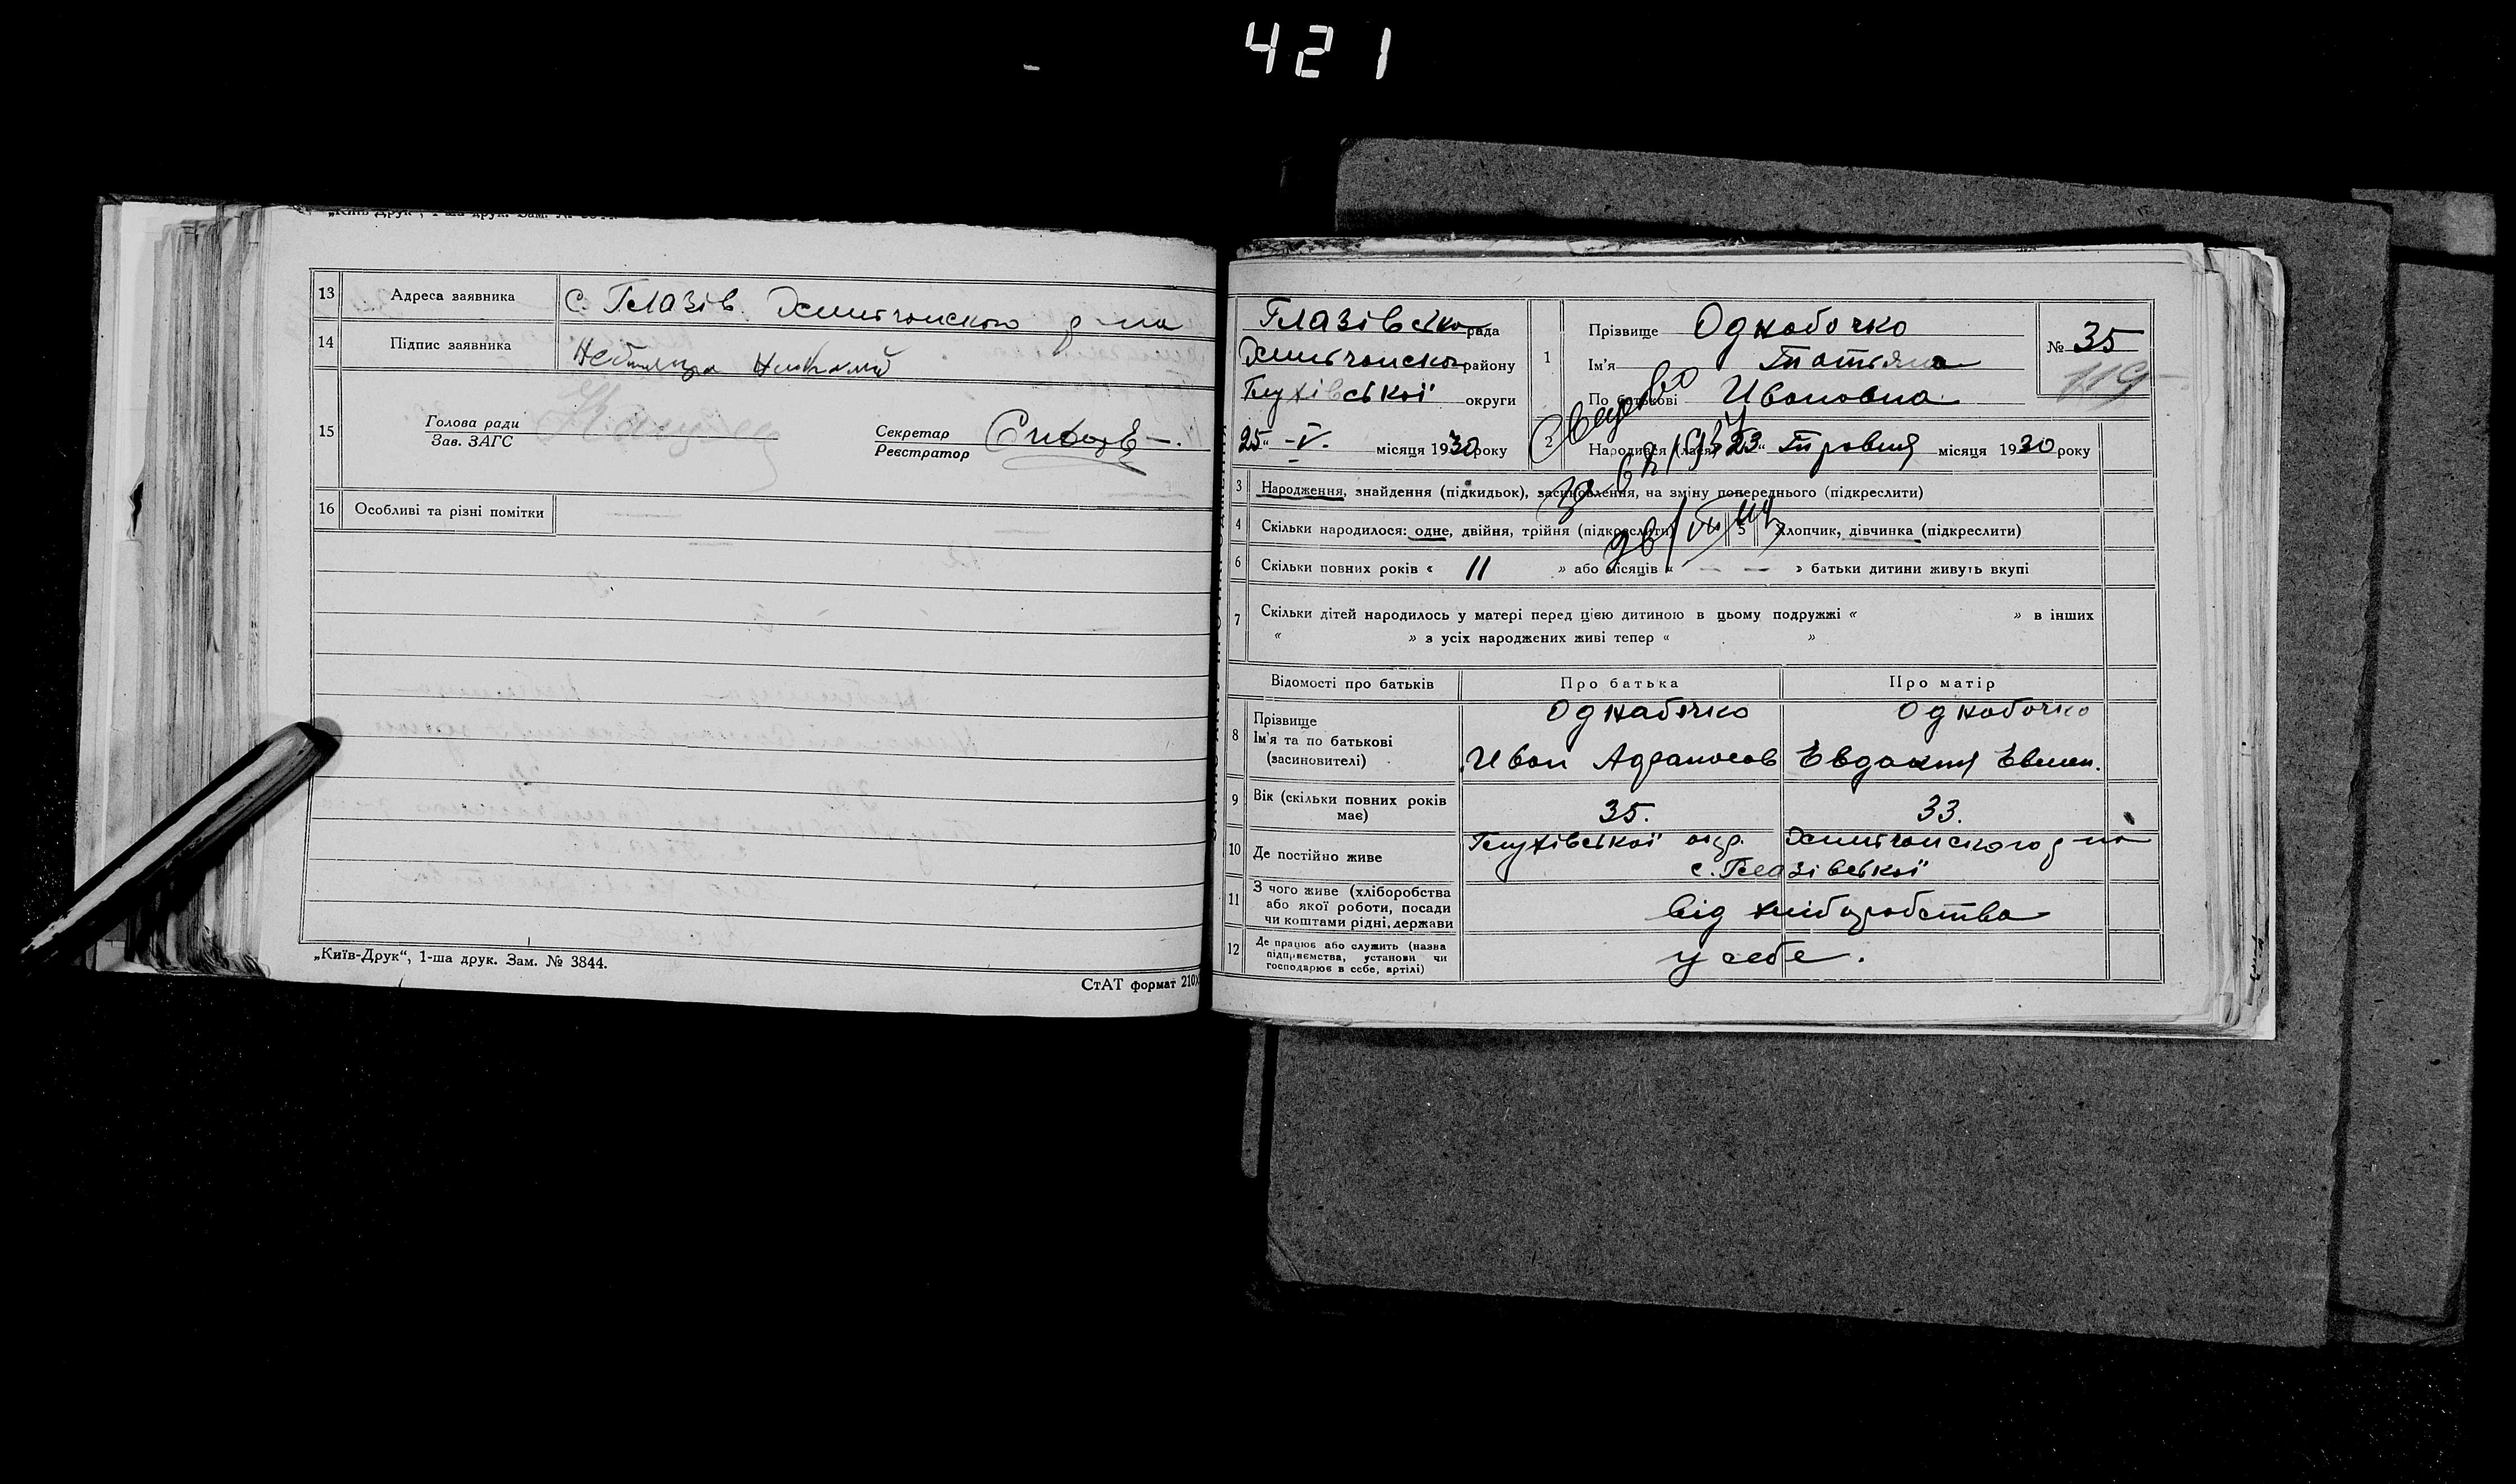 421
13 Адреса заявника с. Глазів. Хмитчанского р-на
14 Підпис заявника
15 Голова ради
Зав. ЗАГС
Секретар
Реєстратор
16 Особливі та різні помітки
„Київ-Друк“, 1-ша друк. Зам. № 3844.
СтАТ формат 210
Глазівсько рада
району
Глухівської округи
25 “ -V. місяця 1930 року
1 Прізвище Однобочко
Ім'я Татьяна
По батькові Ивановна
№ 35
119
2 Народився (лася) „23“ Травня місяця 1930 року
3 Народження, знайдення (підкидьок), засиновлення, на зміну попереднього (підкреслити)
4 Скільки народилося: одне, двійня, трійня (підкреслити) 5 Хлопчик, дівчинка (підкреслити)
6 Скільки повних років « 11 » або місяців « — — » батьки дитини живуть вкупі
7 Скільки дітей народилось у матері перед цією дитиною в цьому подружжі « » в інших
« » з усіх народжених живі тепер « »
Відомості про батьків Про батька Про матір
8 Прізвище Однабочко Однобочко
Ім'я та по батькові
(засиновителі) Иван Евдокия
9 Вік (скільки повних років має) 35. 33.
10 Де постійно живе Глухівської окр. Хмитчанского р-на
с. Глазівської
11 З чого живе (хліборобства
або якої роботи, посади
чи коштами рідні, держави від хліборобства
12 Де працює або служить (назва
підприємства, установи чи
господарює в себе, артілі) у себе.